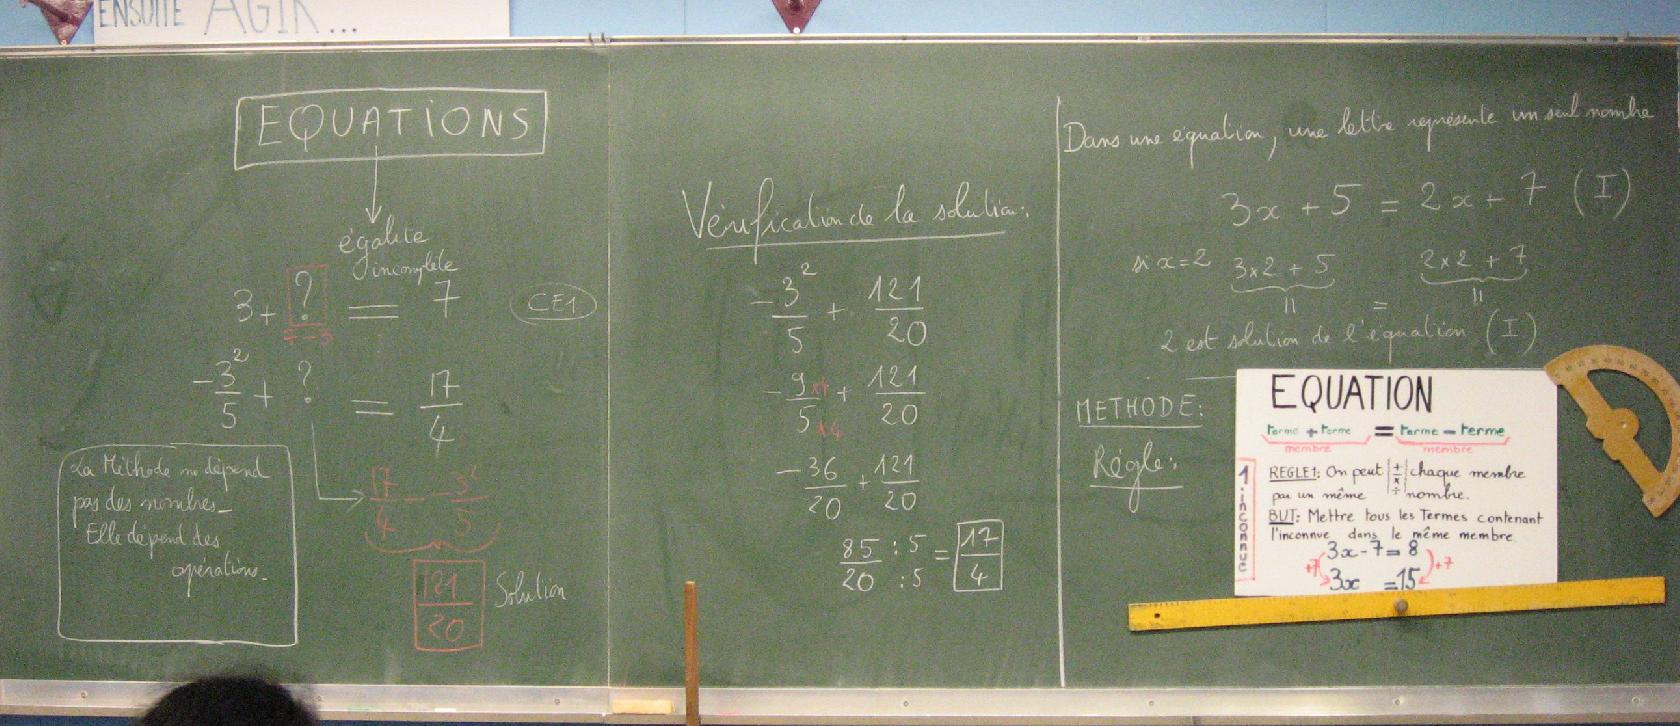 ENSUITE AGIR...
EQUATIONS
égalité
incomplète
3 + ? = 7
7-3
CE1
-3²/5 + ? = 17/4
La Méthode ne dépend
pas des nombres_
Elle dépend des
opérations.
17/4 - -3²/5
121/20 Solution
Vérification de la solution:
-3²/5 + 121/20
-9×4/5×4 + 121/20
-36/20 + 121/20
85:5/20:5 = 17/4
Dans une équation, une lettre représente un seul nombre
3x + 5 = 2x + 7 (I)
si x=2 3×2 + 5 2×2 + 7
=
2 est solution de l'équation (I)
METHODE:
Règle:
EQUATION
terme + terme = terme - terme
membre membre
1 inconnue
REGLE1: On peut + - × ÷ chaque membre
par un même nombre.
BUT: Mettre tous les termes contenant
l'inconnue dans le même membre.
3x-7=8
+7 +7
3x =15